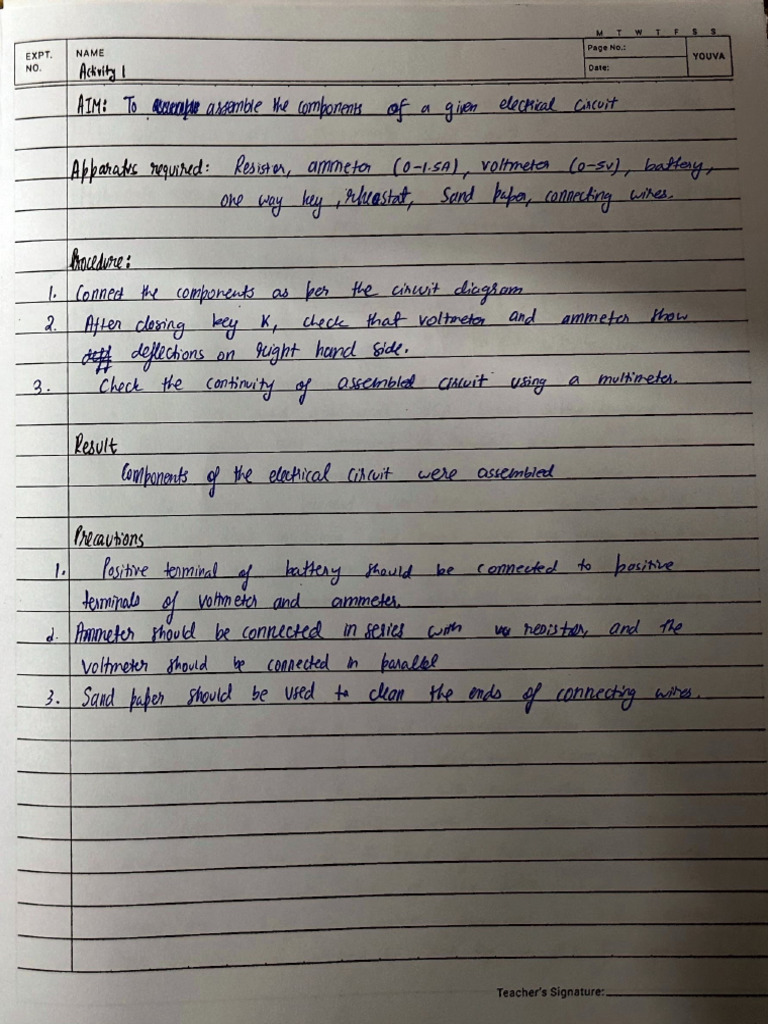 M T W T F S S
EXPT. NO.
NAME
Page No.:
Date:
YOUVA
Activity 1
AIM: To assemble the components of a given electrical circuit
Apparatus required: Resistor, ammeter (0-1.5A), voltmeter (0-5V), battery,
one way key, rheostat, Sand paper, connecting wires.
Procedure:
1. Connect the components as per the circuit diagram
2. After closing key K, check that voltmeter and ammeter show
deflections on right hand side.
3. Check the continuity of assembled circuit using a multimeter.
Result
Components of the electrical circuit were assembled
Precautions
1. Positive terminal of battery should be connected to positive
terminals of voltmeter and ammeter.
2. Ammeter should be connected in series with resistor, and the
voltmeter should be connected in parallel
3. Sand paper should be used to clean the ends of connecting wires.
Teacher's Signature: